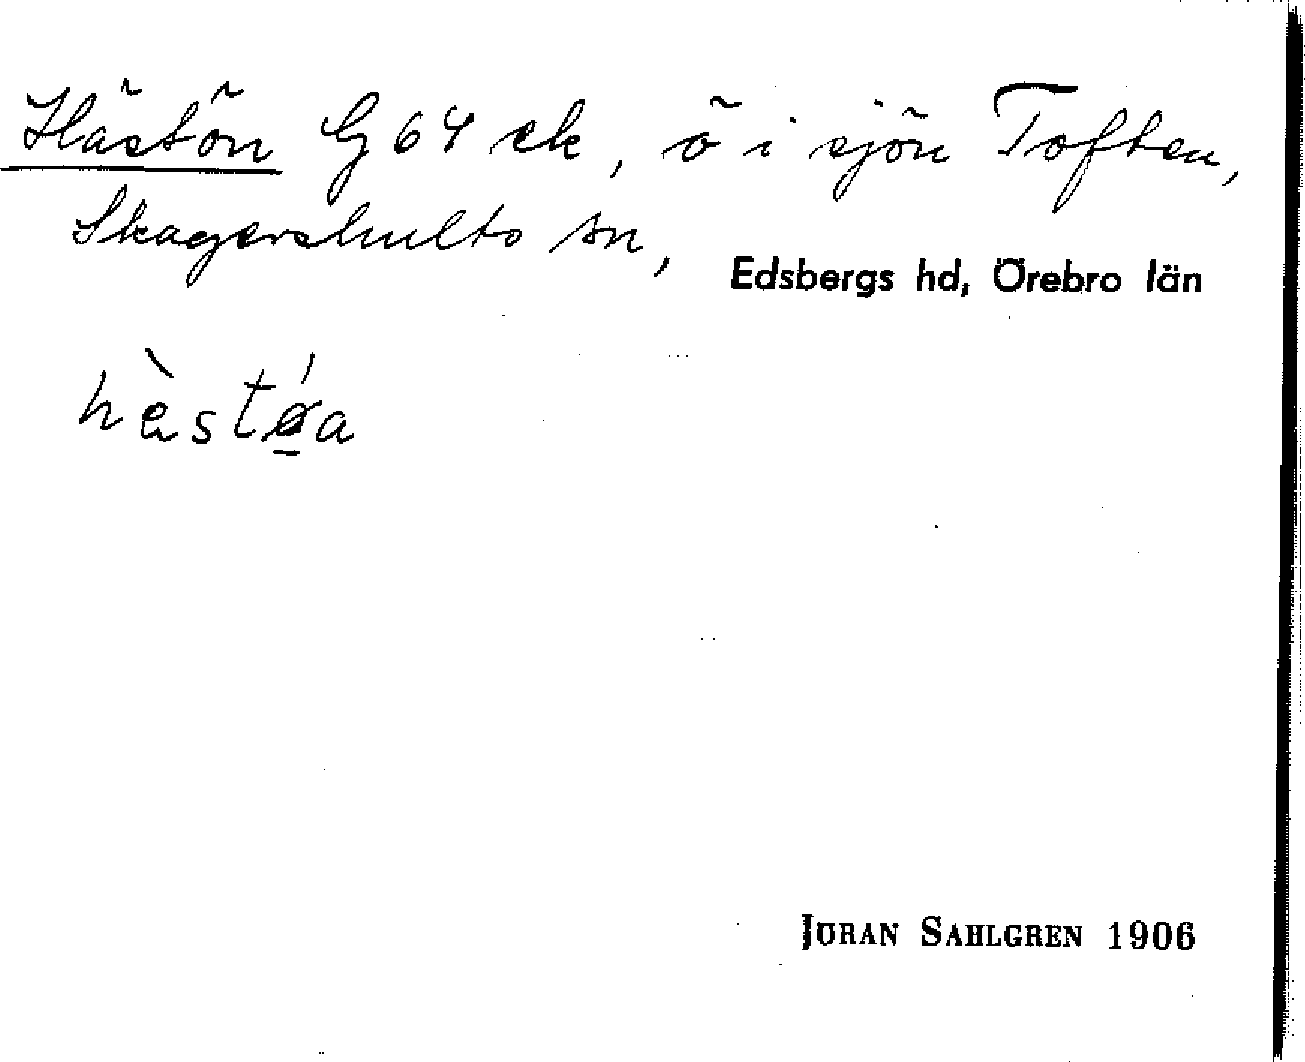 Hästön G 64 ek, ö i sjön Toften,
Skagershults sn,
Edsbergs hd, Örebro län
hèstǿ̱a
JÖRAN SAHLGREN 1906